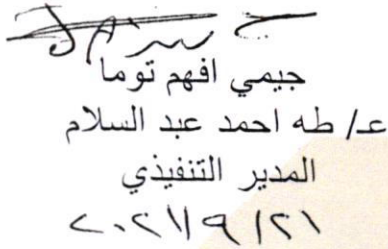 جيمي افهم توما
عـ/ طه احمد عبد السلام
المدير التنفيذي
٢٠٢١/٩/٢١